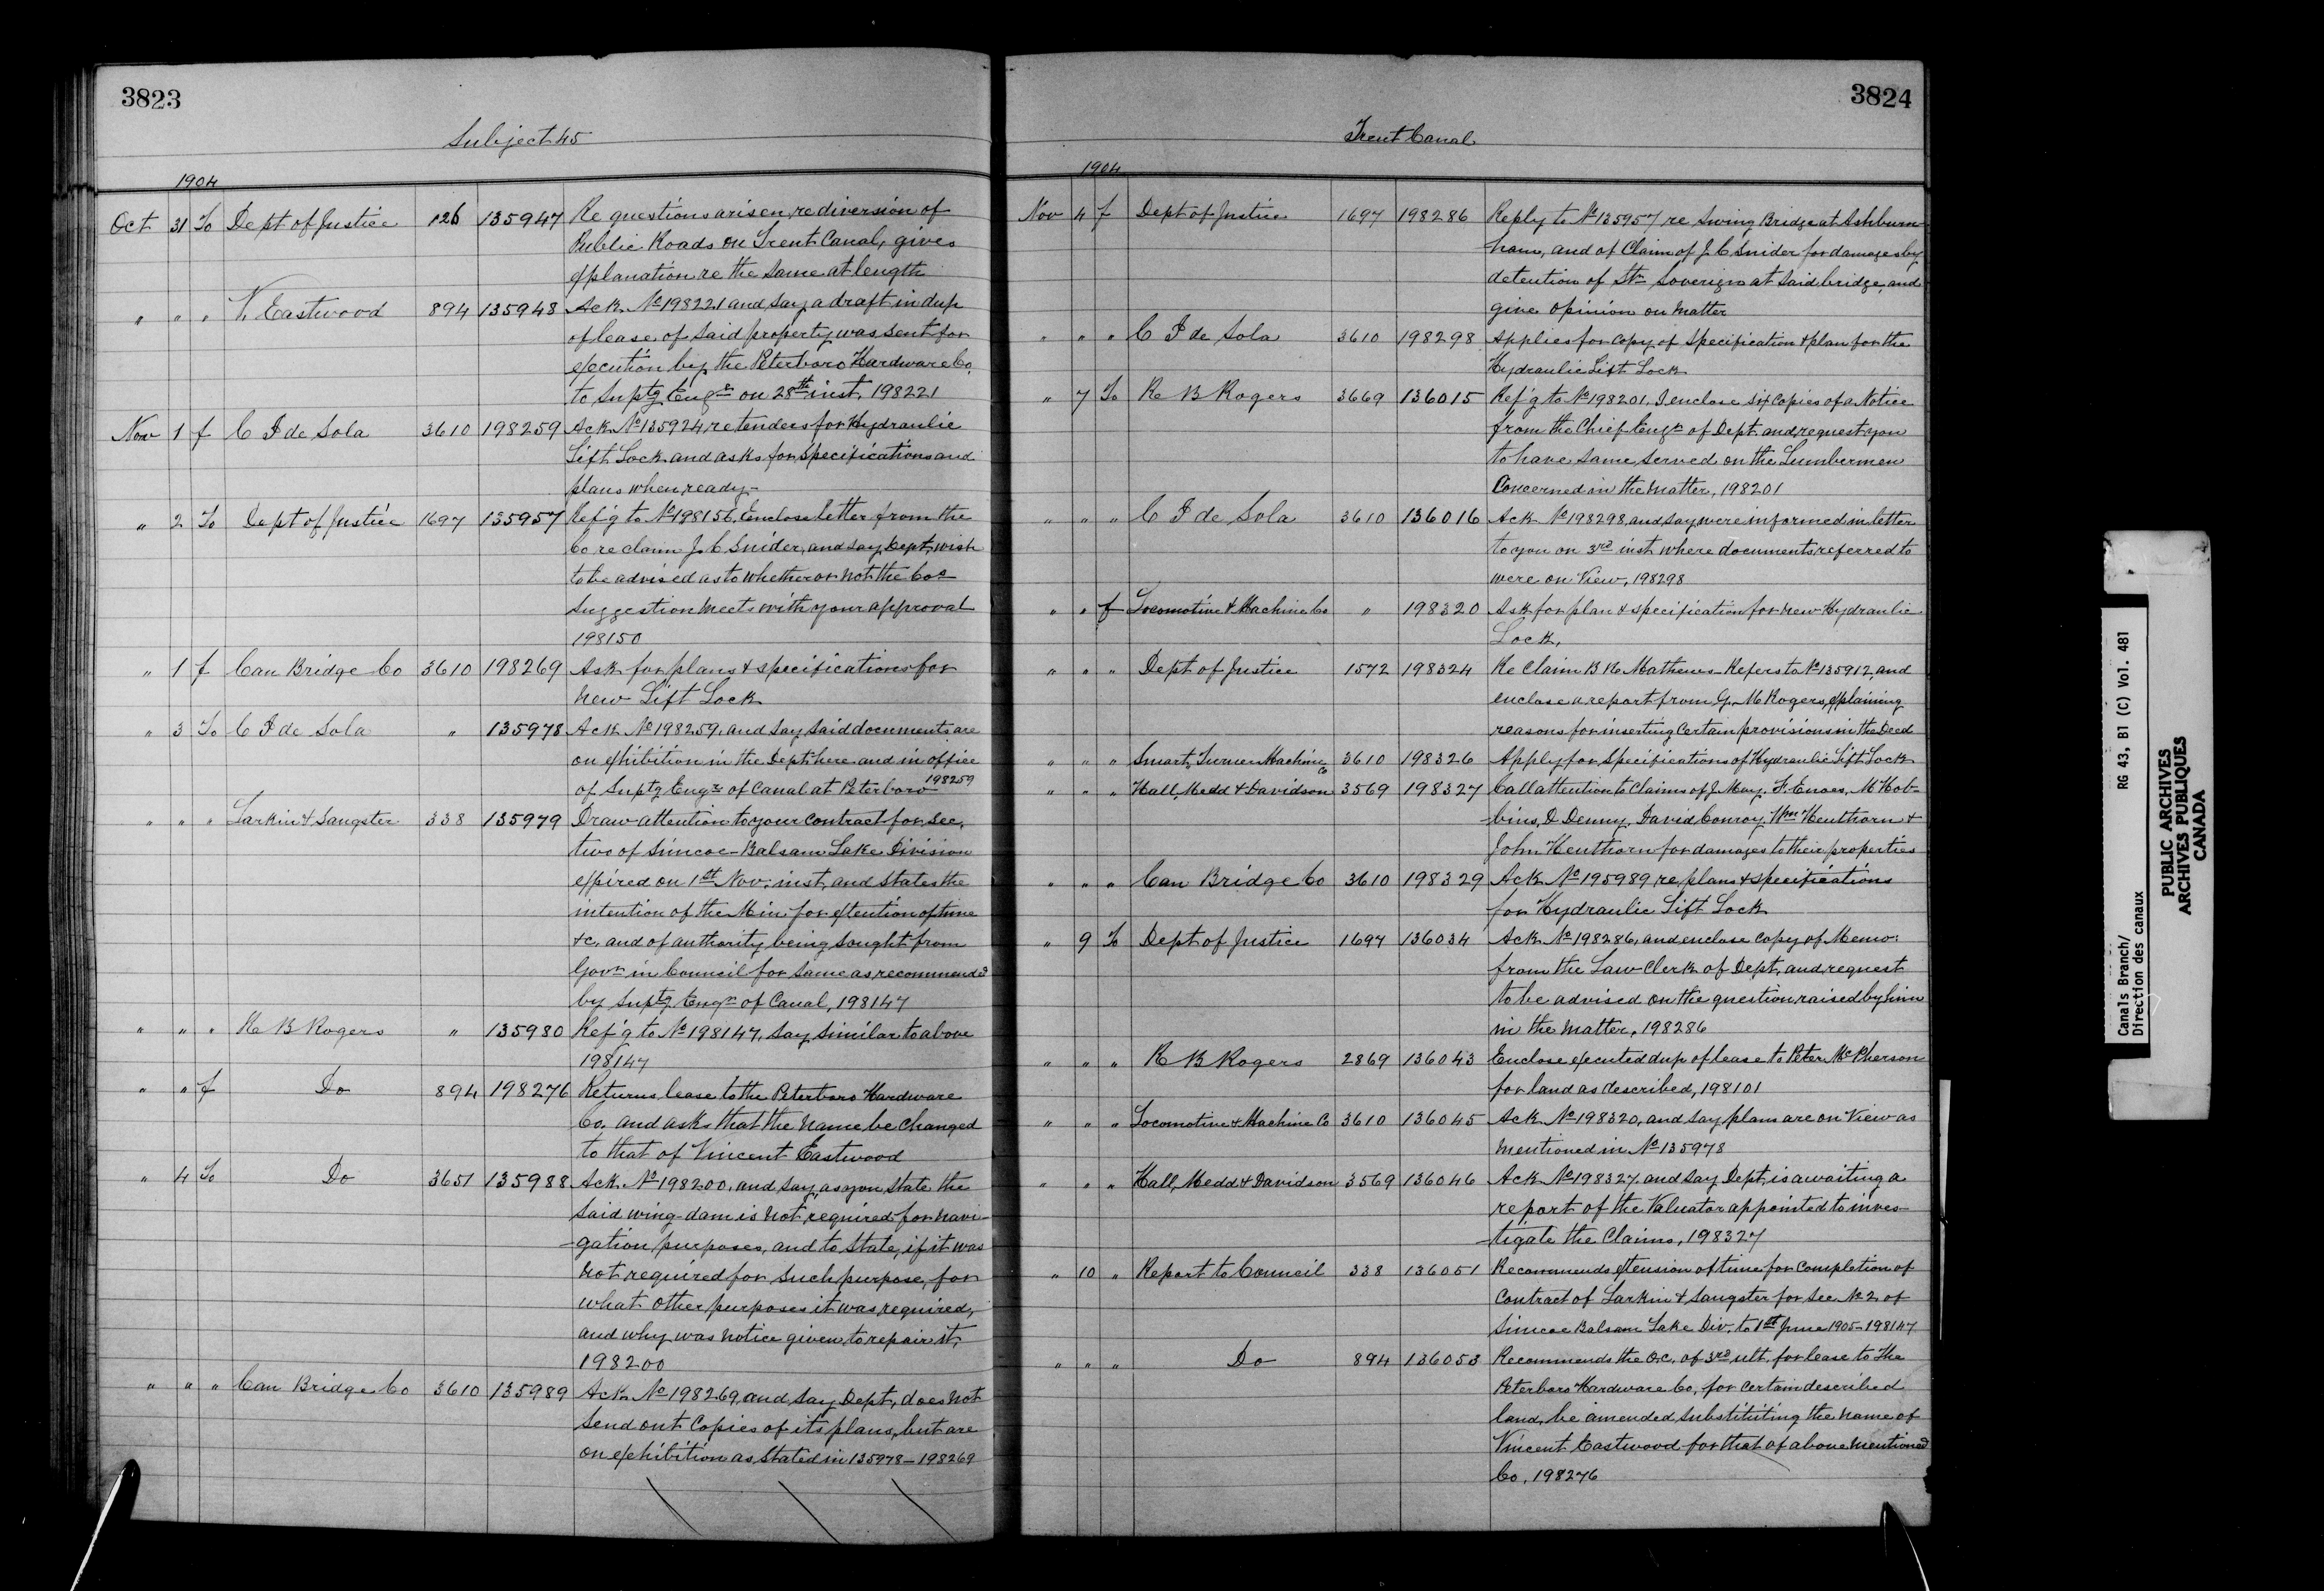 3823
Subject 45
1904
Oct 31 To Dept of Justice 126 135947 Re questions arisen, re diversion of
Public Roads on Trent Canal, gives
explanation re the same at length
" " " V. Eastwood 894 135948 Ack. No 198221 and say a draft in dup
of lease of said property was sent for
execution by the Peterboro Hardware Co.
to Suptg Engr on 28th inst, 198221
Nov 1 f C I de Sola 3610 198259 Ack No 135924 re tenders for Hydraulic
Lift Lock and asks for specifications and
plans when ready-
" 2 To Dept of Justice 1697 135957 Ref'g to No 198156. Enclose letter from the
Co re claim J. C Snider, and say Dept, wish
to be advised as to whether or not the Cos
suggestion meets with your approval
198150
" 1 f Can Bridge Co 3610 198269 Ask for plans & specifications for
new Lift Lock
" 3 To C I de Sola " 135978 Ack No 198259, and say said documents are
on exhibition in the Dept here and in office
of Suptg Engr of Canal at Peterboro 198259
" " " Larkin & Sangster 338 135979 Draw attention to your contract for Sec.
two of Simcoe-Balsam Lake Division
expired on 1st Nov. inst, and states the
intention of the Min for extention of time
&c, and of authority being sought from
Govr in Council for same as recommended
by Suptg Engr of Canal, 198147
" " " R B Rogers " 135980 Ref'g to No 198147, say similar to above
198147
" " f Do 894 198276 Returns lease to the Peterboro Hardware
Co. and asks that the name be changed
to that of Vincent Eastwood
" 4 To Do 3651 135988 Ack No 198200, and say, as you state the
said wing-dam is not required for navi-
-gation purposes, and to state, if it was
not required for such purpose, for
what other purposes it was required,
and why was notice given to repair it,
198200
" " " Can Bridge Co 3610 135989 Ack No 198269, and say Dept, does not
send out copies of its plans, but are
on exhibition as stated in 135978-198269
3824
Trent Canal
1904
Nov 4 f Dept of Justice 1697 198286 Reply to No 135957 re Swing Bridge at Ashburn-
ham, and of Claim of J. C Snider for damages by
detention of Str Soverign at said bridge, and
give opinion on matter
" " " C I de Sola 3610 198298 Applies for copy of specification & plan for the
Hydraulic Lift Lock
" 7 To R B Rogers 3669 136015 Ref'g to No 198201, I enclose six copies of a Notice
from the Chief Engr of Dept. and request you
to have same served on the Lumbermen
Concerned in the matter, 198201
" " " C I de Sola 3610 136016 Ack No 198298, and say, were informed in letter
to you on 3rd inst where documents referred to
were on View, 198298
" " f Locomotive & Machine Co " 198320 Ask for plan & specification for new Hydraulic
Lock,
" " " Dept of Justice 1572 198324 Re Claim B R Mathews. Refers to No 135912, and
enclose a report from G. M Rogers, explaining
reasons for inserting certain provisions in the Deed
" " " Smart, Turner Machine Co 3610 198326 Apply for specifications of Hydraulic Lift Lock
" " " Hall, Medd & Davidson 3569 198327 Call attention to Claims of J. May, F. Enoes, M Hob-
bins, D Denny, David Conroy, Wm Henthorn &
John Henthorn for damages to their properties
" " " Can Bridge Co 3610 198329 Ack No 195989, re plans & specifications
for Hydraulic Lift Lock
" 9 To Dept of Justice 1697 136034 Ack No 198286, and enclose copy of Memo:
from the Law Clerk of Dept, and request
to be advised on the question, raised by him
in the matter, 198286
" " " R B Rogers 2869 136043 Enclose executed dup of lease to Peter McPherson
for land as described, 198101
" " " Locomotive & Machine Co 3610 136045 Ack No 198320, and say plans are on View as
mentioned in No 135978
" " " Hall, Medd & Davidson 3569 136046 Ack No 198327 and say Dept, is awaiting a
report of the Valuator appointed to inves-
-tigate the Claims, 198327
" 10 " Report to Council 338 136051 Recommends extension of time for completion of
contract of Larkin & Sangster for Sec No 2 of
Simcoe Balsam Lake Div. to 1st June 1905-198147
" " " Do 894 136053 Recommends the O.C. of 3rd ult. for lease to the
Peterboro Hardware Co, for certain described
land, be amended substituting the name of
Vincent Eastwood for that of above mentioned
Co, 198276
Canals Branch/
Direction des canaux
RG 43, B1 (C) Vol. 481
PUBLIC ARCHIVES
ARCHIVES PUBLIQUES
CANADA